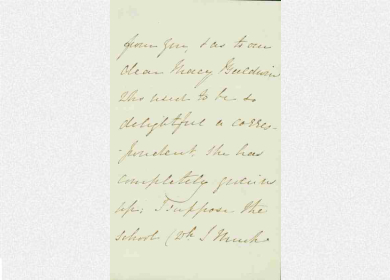 from you, & as to our
dear Macy Guildwin
who used to be so
delightful a corres-
-pondent, she has
completely given us
up; I suppose the
school (wh I much